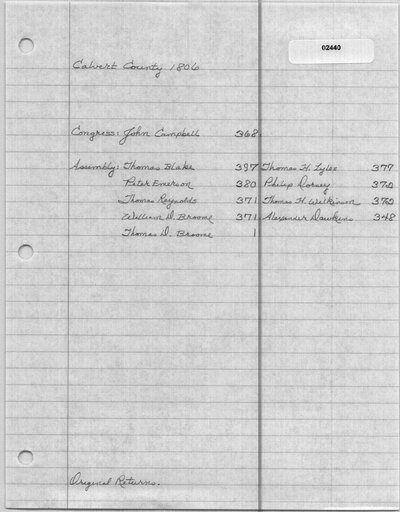 02440
Calvert County 1806
Congress: John Campbell 368
Assembly: Thomas Blake 397 Thomas H. Lyles 377
Peter Emerson 380 Philip Dorsey 370
Thomas Reynolds 371 Thomas H. Wilkinson 370
William D. Broome 371 Alexander Dawkins 348
Thomas D. Broome 1
Original Returns.